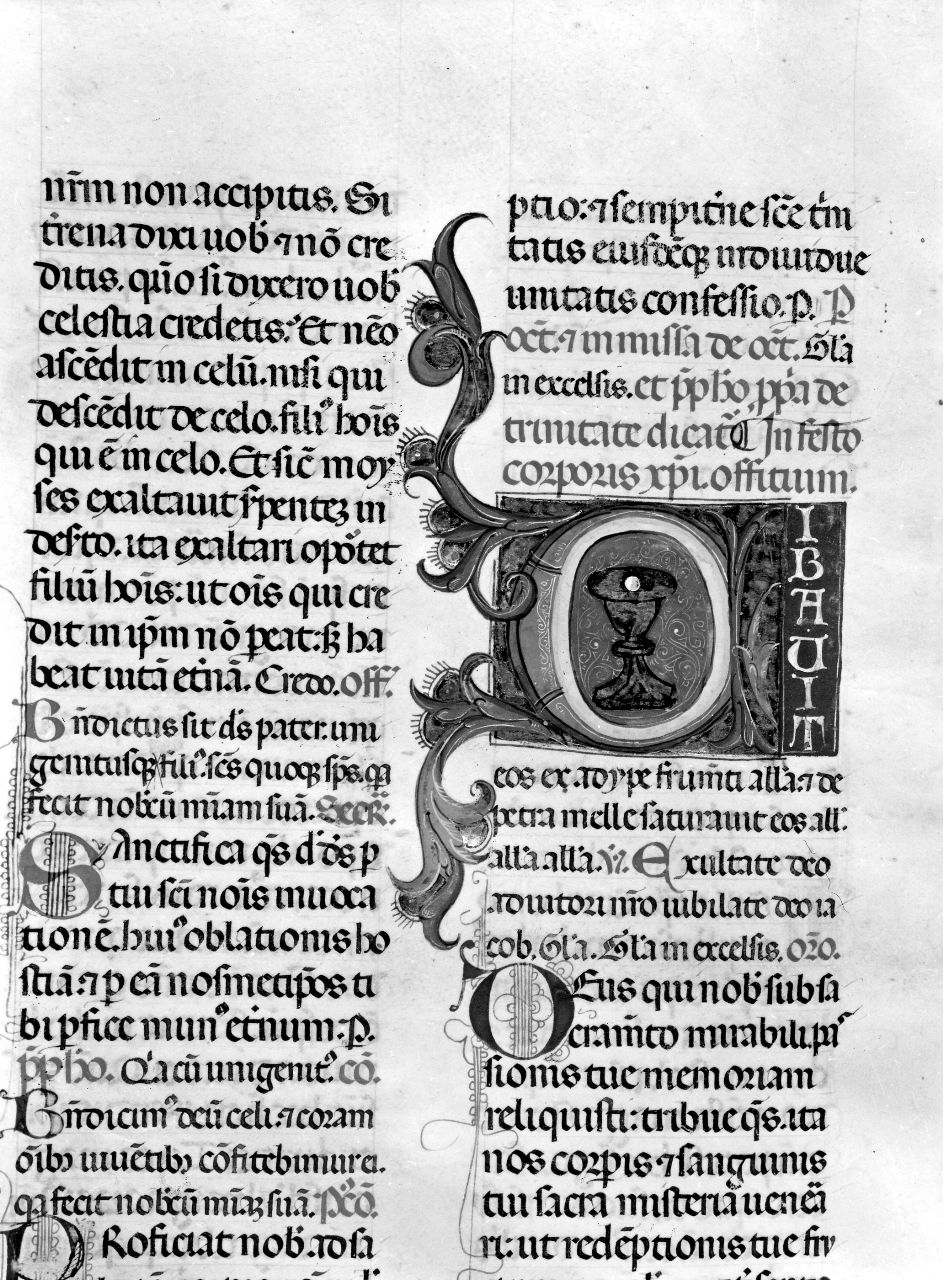 nr̄m non accipitis. Si
t̄rena dixi uob̄ ⁊ nō cre
ditis. quō si dixero uob̄
celestia credetis.ʼ Et nēo
ascēdit in celū. nisi qui
descēdit de celo. filiꝰ hoīs
qui ē in celo. Et sic̄ moy
ses exaltauit s̄pentez in
des̄to. ita exaltari opōtet
filiū hoīs: ut oīs qui cre
dit in ip̄m nō ꝑeat: sꝫ ha
beat uitā et̄nā. Credo. off̄.
Bn̄dictus sit d̄s pater. uni
genitusqꝫ filiꝰ. sc̄s quoqꝫ sp̄s. qꝛ
fecit nobc̄ū mīam suā. Secr̄.
SAnctifica qs̄ d̄ d̄s ꝑ
tui sc̄i noīs inuoca
tionē. huiꝰ oblationis ho
stiā: ⁊ ꝑ eā nosmetip̄os ti
bi ꝑfice munꝰ et̄num: P.
pp̄ho. Qͥ a cū unigenit̄ꝰ. cō.
Bn̄dicimꝰ deū celi. ⁊ coram
oīb⁊ uiuētib⁊ cōfitebimur ei.
qꝛ fecit nobc̄ū mīaꝫ suā. Pꝯcō.
PRoficiat nob̄ ad sa
ptio: ⁊ sempit̄ne sc̄e t̄ni
tatis eiusdēqꝫ indiuidue
unitatis confessio. P. P
oct̄. ⁊ in missa de oct̄. Gl̄a
in excelsis. et pp̄ho pp̄a de
trinitate dicat̄ᷣ ⸿ In festo
corporis xp̄i. offitium.
CIBAUIT
eos ex adype frumn̄ti all̄a. ⁊ de
petra melle saturauit eos all̄.
all̄a. all̄a. ℣. Exultate deo
adiutori nr̄o iubilate deo ia
cob. Gl̄a. Gl̄a in excelsis. oꝛo.
DEus qui nob̄ sub sa
cramn̄to mirabili. pas
sionis tue memoriam
reliquisti: tribue qs̄. ita
nos corꝑis ⁊ sanguinis
tui sacra misteria uenēa
ri: ut redēptionis tue fru